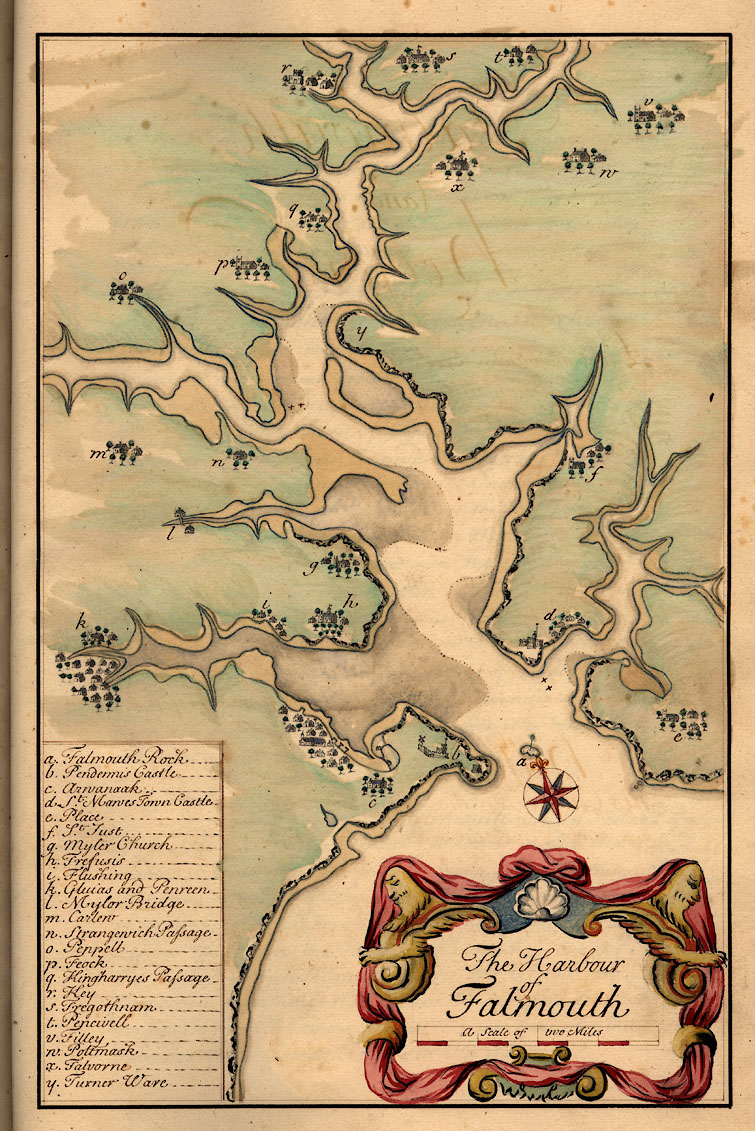 r
s
t
v
w
x
q
p
o
y
m
n
f
l
g
i
h
d
k
e
b
a
c
a. Falmouth Rock
b. Pendennis Castle
c. Arwanaak
d. St. Mawes Town Castle
e. Place
f. St. Just
g. Myler Church
h. Trefusis
i. Flushing
k. Gluias and Penreen
l. Mylor Bridge
m. Carlew
n. Strangewich Passage
o. Peppell
p. Feock
q. Kingharryes Passage
r. Key
s. Tregothnam
t. Pencivell
v. Filley
w. Poltmask
x. Talvorne
y. Turner Ware
The Harbour
of
Falmouth
A Scale of two Miles